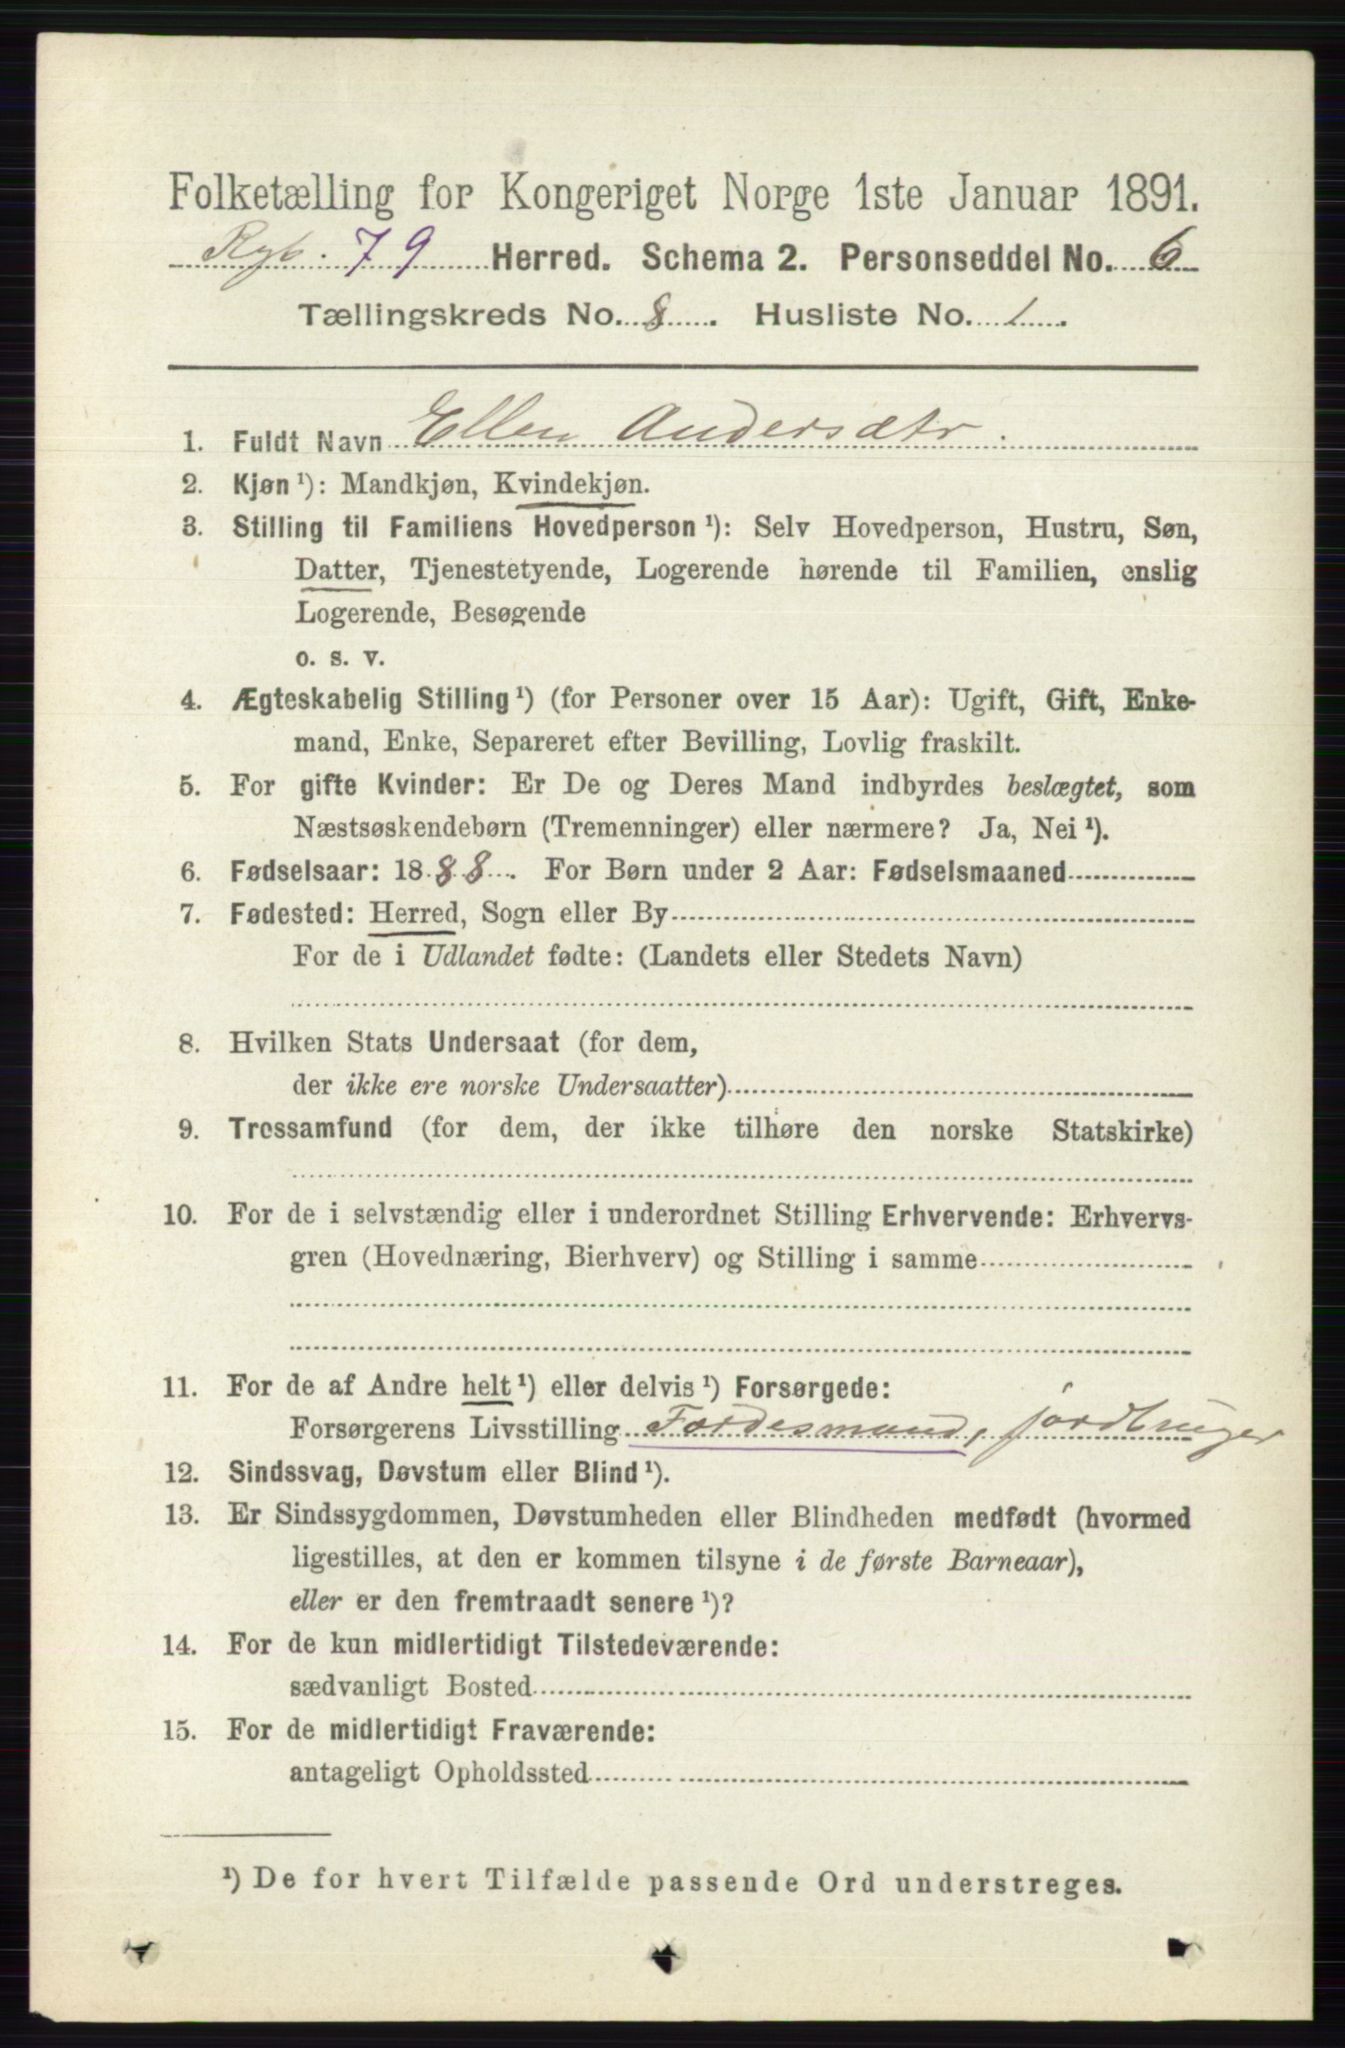 Folketælling for Kongeriget Norge 1ste Januar 1891.
Ryb. 79 Herred. Schema 2. Personseddel No. 6
Tællingskreds No. 8. Husliste No. 1.
1. Fuldt Navn Ellen Andersdtr.
2. Kjøn ¹): Mandkjøn, Kvindekjøn.
3. Stilling til Familiens Hovedperson ¹): Selv Hovedperson, Hustru, Søn,
Datter, Tjenestetyende, Logerende hørende til Familien, enslig
Logerende, Besøgende
o. s. v.
4. Ægteskabelig Stilling ¹) (for Personer over 15 Aar): Ugift, Gift, Enke-
mand, Enke, Separeret efter Bevilling, Lovlig fraskilt.
5. For gifte Kvinder: Er De og Deres Mand indbyrdes beslægtet, som
Næstsøskendebørn (Tremenninger) eller nærmere? Ja, Nei ¹).
6. Fødselsaar: 1888. For Børn under 2 Aar: Fødselsmaaned
7. Fødested: Herred, Sogn eller By
For de i Udlandet fødte: (Landets eller Stedets Navn)
8. Hvilken Stats Undersaat (for dem,
der ikke ere norske Undersaatter)
9. Trossamfund (for dem, der ikke tilhøre den norske Statskirke)
10. For de i selvstændig eller i underordnet Stilling Erhvervende: Erhvervs-
gren (Hovednæring, Bierhverv) og Stilling i samme
11. For de af Andre helt ¹) eller delvis ¹) Forsørgede:
Forsørgerens Livsstilling jordbruger
12. Sindssvag, Døvstum eller Blind ¹).
13. Er Sindssygdommen, Døvstumheden eller Blindheden medfødt (hvormed
ligestilles, at den er kommen tilsyne i de første Barneaar),
eller er den fremtraadt senere ¹)?
14. For de kun midlertidigt Tilstedeværende:
sædvanligt Bosted
15. For de midlertidigt Fraværende:
antageligt Opholdssted
¹) De for hvert Tilfælde passende Ord understreges.